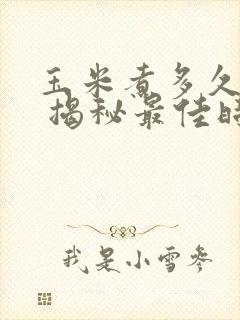 玉米煮多久
揭秘最佳
我是小雪参